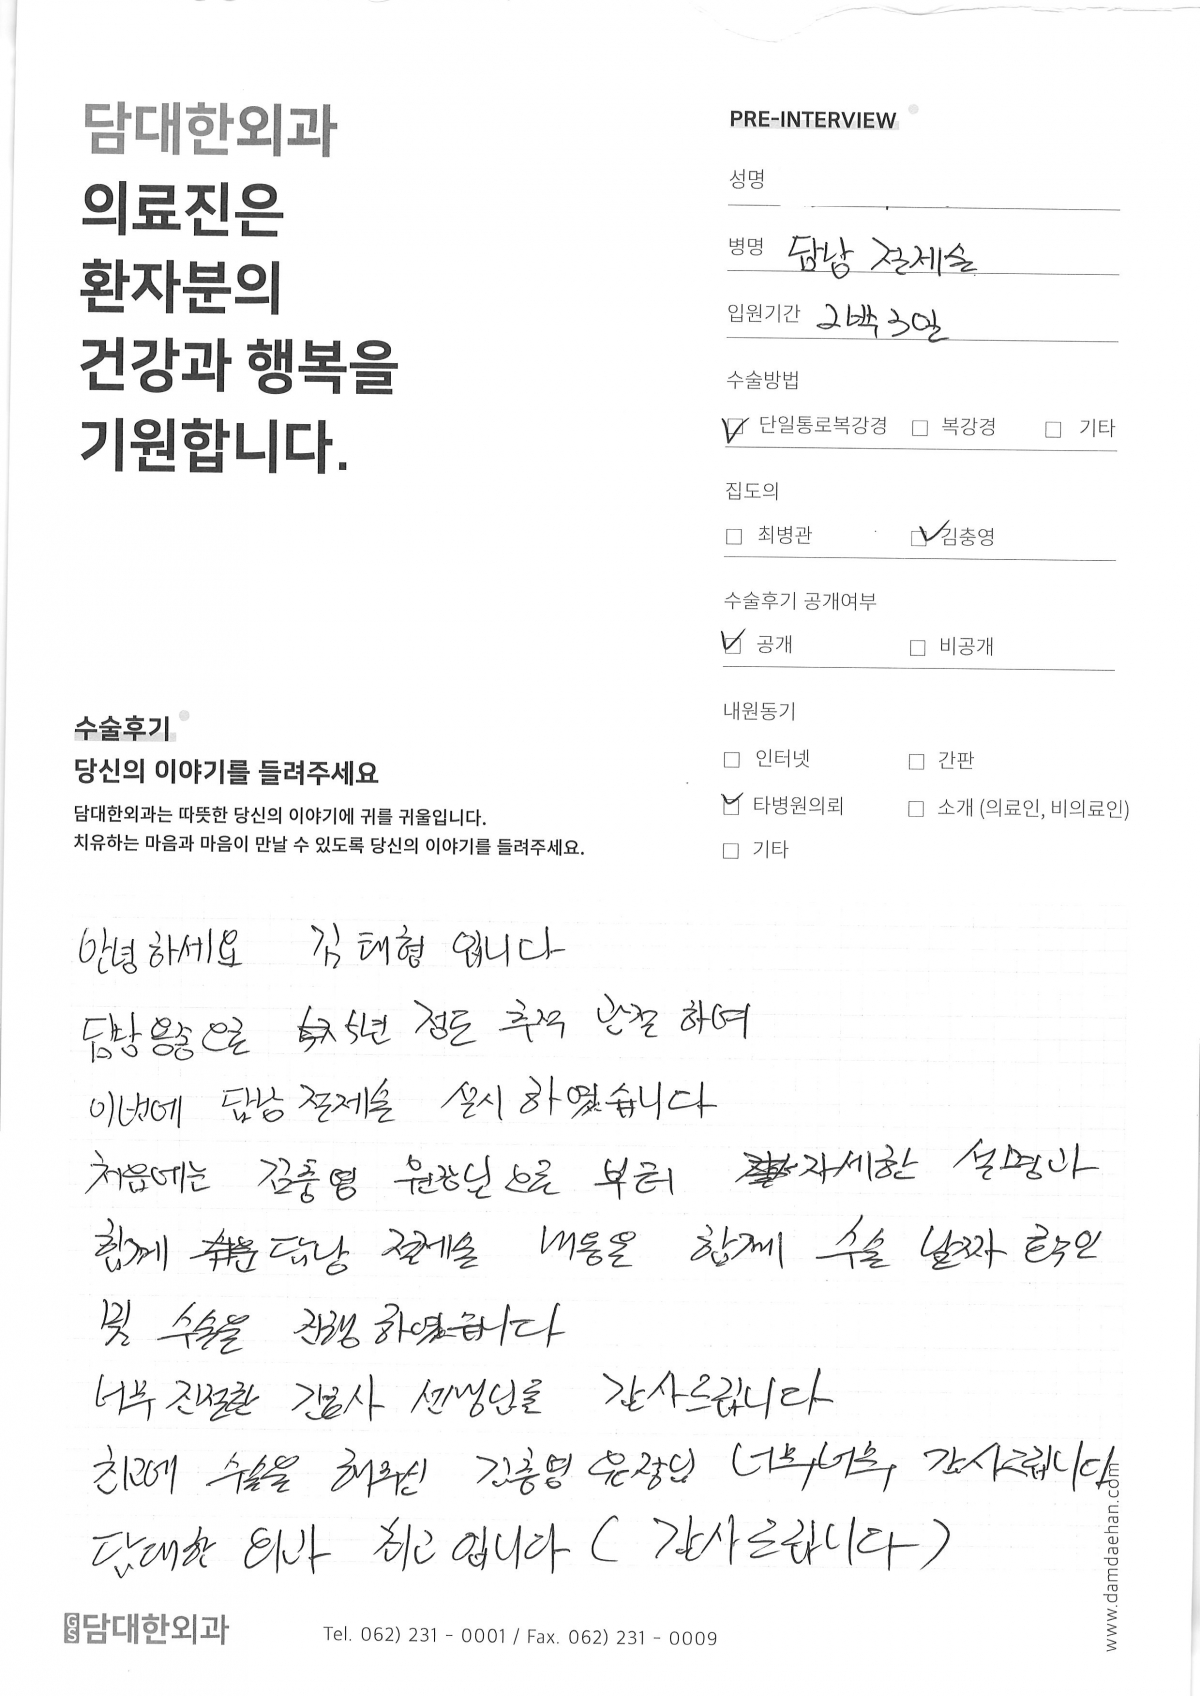 담대한외과
의료진은
환자분의
건강과 행복을
기원합니다.
PRE-INTERVIEW
성명
병명 담낭 절제술
입원기간 2박 3일
수술방법
단일통로복강경 복강경 기타
집도의
최병관 김충영
수술후기 공개여부
공개 비공개
내원동기
인터넷 간판
타병원의뢰 소개 (의료인, 비의료인)
기타
수술후기
당신의 이야기를 들려주세요
담대한외과는 따뜻한 당신의 이야기에 귀를 귀울입니다.
치유하는 마음과 마음이 만날 수 있도록 당신의 이야기를 들려주세요.
안녕하세요 김태형 입니다
담낭용종으로 5년 정도 추적 관찰 하여
이번에 담낭 절제술을 실시 하였습니다
처음에는 김충영 원장님으로 부터 자세한 설명과
함께 담낭 절제술 내용을 함께 수술 날짜 확인
및 수술을 진행 하였습니다
너무 친절한 간호사 선생님들 감사드립니다
최고에 수술을 해주신 김충영 원장님 너무,너무, 감사드립니다
담대한 외과 최고 입니다 ( 감사드립니다 )
www.damdaehan.com
GS 담대한외과
Tel. 062) 231 - 0001 / Fax. 062) 231 - 0009